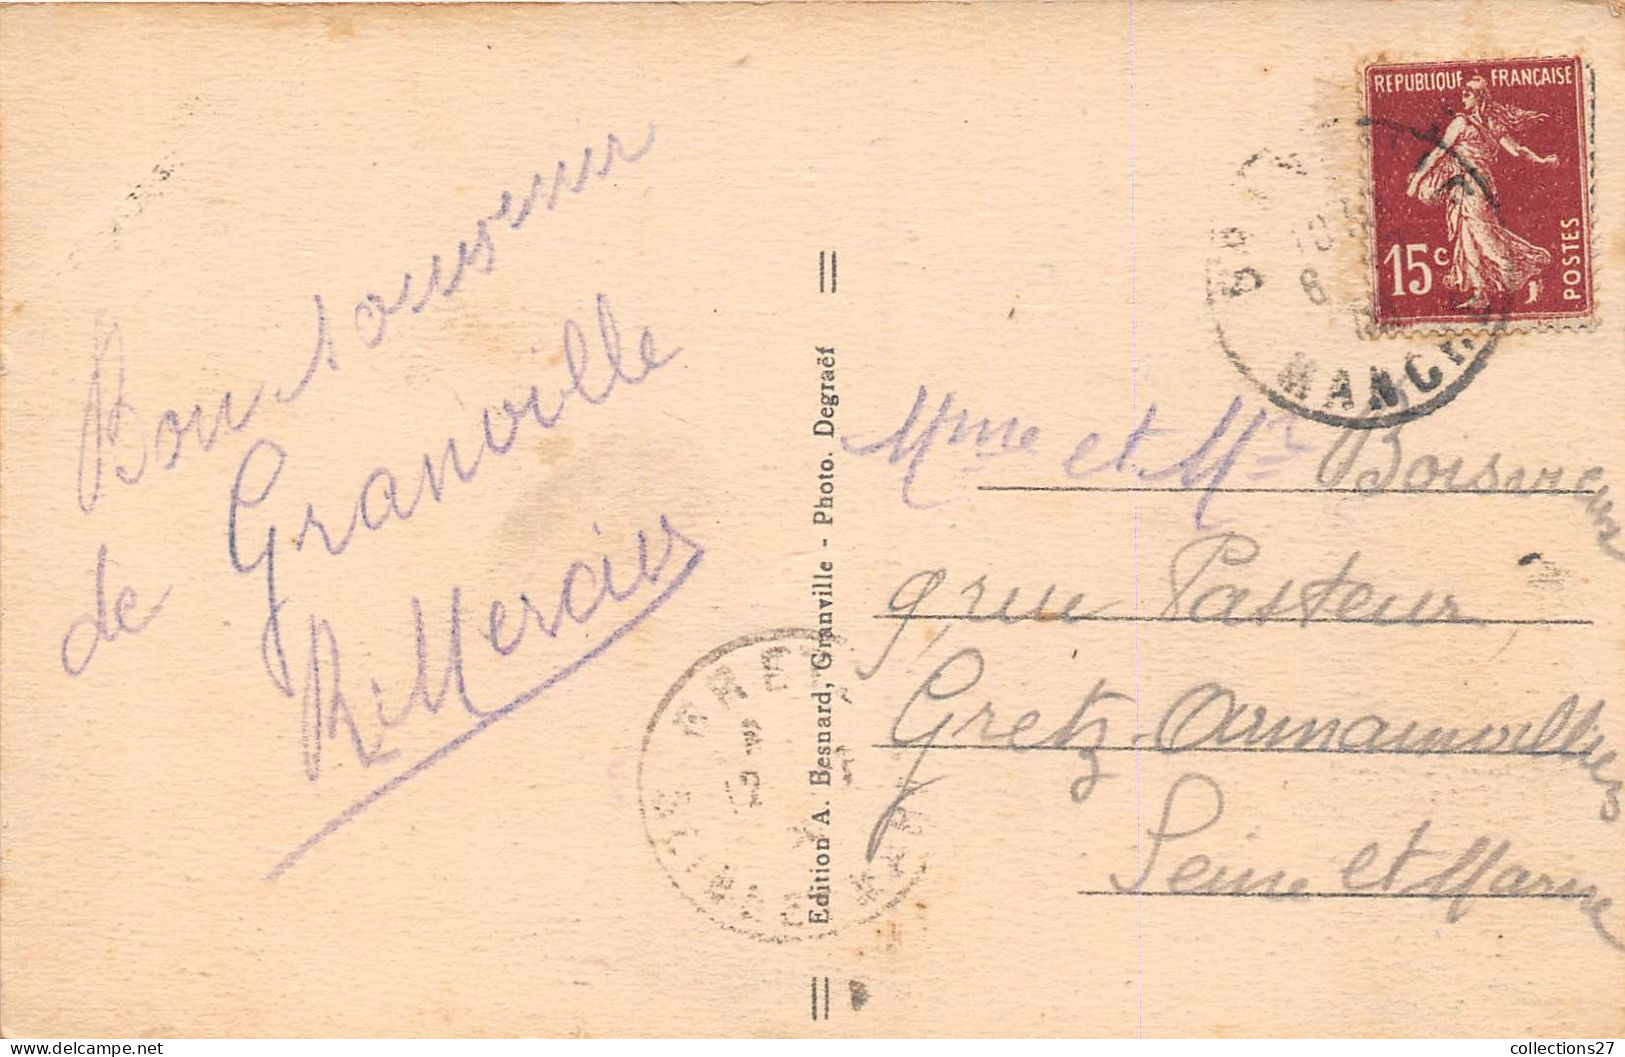 Bon souvenir
de Granville
R. Mercier
Edition A. Besnard, Granville - Photo. Degraëf
REPUBLIQUE FRANÇAISE
15c
POSTES
MANCHE
Mme et Mr
9, rue Pasteur,
Gretz-Armainvilliers
Seine et Marne
collections27